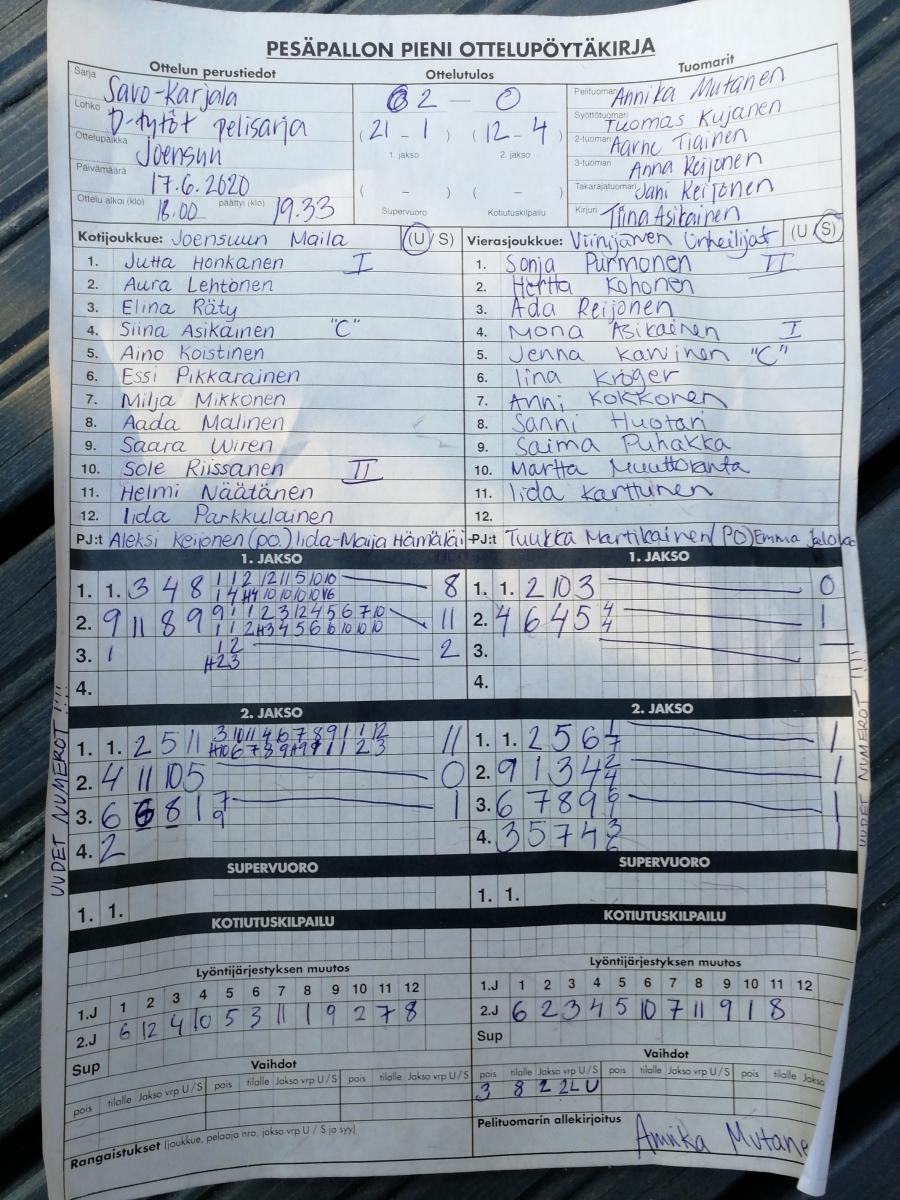 PESÄPALLON PIENI OTTELUPÖYTÄKIRJA
Ottelun perustiedot
Ottelutulos
Tuomarit
Sarja Savo-Karjala
Lohko D-tytöt pelisarja
Ottelupaikka Joensuu
Päivämäärä 17.6.2020
Ottelu alkoi (klo) 18.00 päättyi (klo) 19.33
2 – 0
(21 – 1) (12 – 4)
1. jakso 2. jakso
( – ) ( – )
Supervuoro Kotiutuskilpailu
Pelituomari Annika Mutanen
Syöttötuomari Tuomas Kujanen
2-tuomari Aarne Tiainen
3-tuomari Anna Keijonen
Takarajatuomari Jani Keijonen
Kirjuri Tiina Asikainen
Kotijoukkue: Joensuun Maila (U/S)
1. Jutta Honkanen I
2. Aura Lehtonen
3. Elina Räty
4. Siina Asikainen "C"
5. Aino Koistinen
6. Essi Pikkarainen
7. Milja Mikkonen
8. Aada Malinen
9. Saara Wiren
10. Sole Riissanen II
11. Helmi Näätänen
12. Iida Parkkulainen
PJ:t Aleksi Keijonen (po.) Iida-Maija Hämäläi
Vierasjoukkue: Viinijärven Urheilijat (U/S)
1. Sonja Purmonen II
2. Hertta Kohonen
3. Ada Reijonen
4. Mona Asikainen I
5. Jenna Karvinen "C"
6. Iina Kröger
7. Anni Kokkonen
8. Sanni Huotari
9. Saima Puhakka
10. Martta Muuttoranta
11. Iida Karttunen
12.
PJ:t Tuukka Martikainen (PO) Emma
1. JAKSO
1. 1. 3 4 8 8
2. 9 11 8 9 9 11
3. 1 2
4.
1. JAKSO
1. 1. 2 10 3 0
2. 4 6 4 5 4 4 1
3.
4.
UUDET NUMEROT !!!!
2. JAKSO
1. 1. 2 5 11 11
2. 4 11 10 5 0
3. 6 6 8 1 7 9 1
4. 2
2. JAKSO
1. 1. 2 5 6 1
2. 9 1 3 4 2 4 1
3. 6 7 8 9 1
4. 3 5 7 4 1
UUDET NUMEROT !!!!
SUPERVUORO
1. 1.
SUPERVUORO
1. 1.
KOTIUTUSKILPAILU
KOTIUTUSKILPAILU
Lyöntijärjestyksen muutos
1.J 1 2 3 4 5 6 7 8 9 10 11 12
2.J 6 12 4 10 5 3 11 1 9 2 7 8
Sup
Lyöntijärjestyksen muutos
1.J 1 2 3 4 5 6 7 8 9 10 11 12
2.J 6 2 3 4 5 10 7 11 9 1 8
Sup
Vaihdot
pois tilalle Jakso vrp U/S pois tilalle Jakso vrp U/S pois tilalle Jakso vrp U/S
Vaihdot
pois tilalle Jakso vrp U/S pois tilalle Jakso vrp U/S pois tilalle Jakso
3 8 2 2L U
Rangaistukset (joukkue, pelaaja nro, jakso vrp U / S ja syy)
Pelituomarin allekirjoitus Annika Mutane